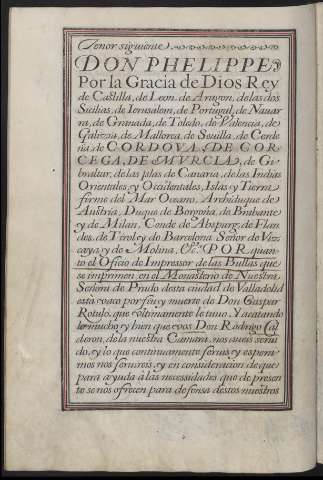 Tenor siguiente
DON PHELIPPE
Por la Gracia de Dios Rey
de Castilla, de Leon, de Aragon, de las dos
Sicilias, de Ierusalem, de Portugal, de Nauar
ra, de Granada, de Toledo, de Valencia, de
Galizia, de Mallorca, de Seuilla, de Cerde
ña de CORDOVA, DE COR
CEGA, DE MVRCIA, de Gi
braltar, de las Islas de Canaria, de las Indias
Orientales, y Occidentales, Islas y Tierra
firme del Mar Oceano, Archiduque de
Austria, Duque de Borgoña, de Brabante
y de Milan, Conde de Abspurg, de Flan
des, de Tirol, y de Barcelona, Señor de Viz
caya, y de Molina, &c. POR quan
to el Oficio de Impresor de las Bullas que
se imprimen en el Monasterio de Nuestra
Señora de Prado desta ciudad de Valladolid
està vaco por fin, y muerte de Don Gaspar
Rotulo, que vltimamente le tuuo. Y acatando
lo mucho, y bien que vos Don Rodrigo Cal
deron, de la nuestra Camara, nos aueis serui
do, y lo que continuamente seruis, y espera
mos nos seruireis, y en consideracion de que
para ayuda à las necessidades que de presen
te se nos ofrecen para defensa destos nuestros